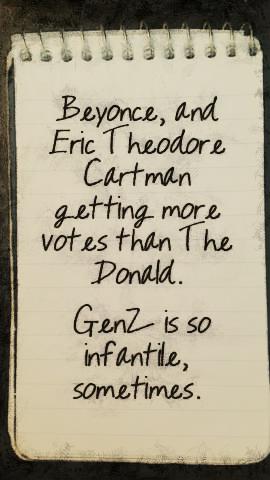 Beyonce, and
Eric Theodore
Cartman
getting more
votes than The
Donald.
GenZ is so
infantile,
sometimes.